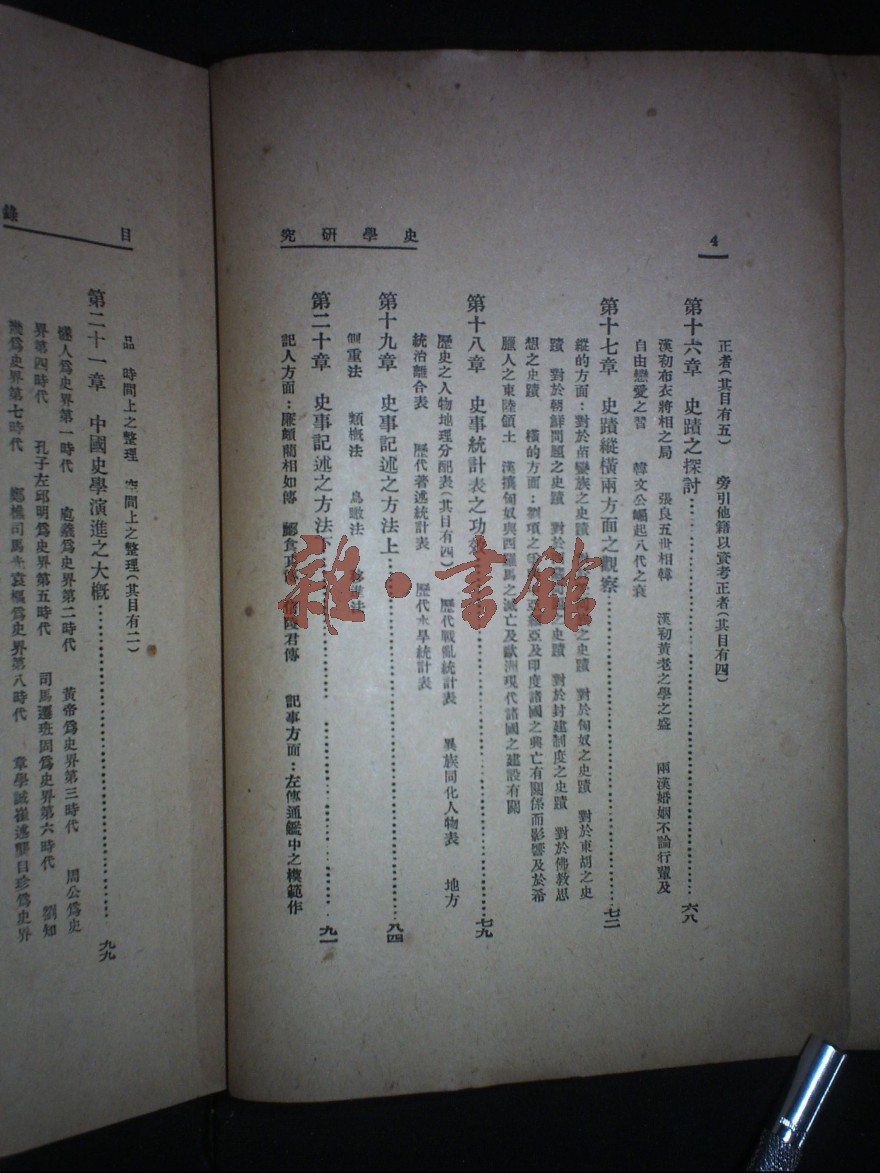 4
史學研究
正者(其目有五) 旁引他籍以資考正者(其目有四)
第十六章 史蹟之探討……六八
漢初布衣將相之局 張良五世相韓 漢初黃老之學之盛 兩漢婚姻不論行輩及
自由戀愛之習 韓文公崛起八代之衰
第十七章 史蹟縱橫兩方面之觀察……七二
縱的方面:對於苗蠻族之史蹟 之史蹟 對於匈奴之史蹟 對於東胡之史
蹟 對於朝鮮問題之史蹟 對於 之史蹟 對於封建制度之史蹟 對於佛教思
想之史蹟 橫的方面:劉項之 亞及印度諸國之興亡有關係而影響及於希
臘人之東陸領土 漢攘匈奴與西羅馬之滅亡及歐洲現代諸國之建設有關
第十八章 史事統計表之功效……七九
歷史之人物地理分配表(其目有四) 歷代戰亂統計表 異族同化人物表 地方
統治離合表 歷代著述統計表 歷代水旱統計表
第十九章 史事記述之方法上……八四
側重法 類概法 鳥瞰法
第二十章 史事記述之方法下……九一
記人方面:廉頗藺相如傳 信陵君傳 記事方面:左傳通鑑中之模範作
雜·書館
目錄
品 時間上之整理 空間上之整理(其目有二)
第二十一章 中國史學演進之大概……九九
燧人爲史界第一時代 庖羲爲史界第二時代 黃帝爲史界第三時代 周公爲史
界第四時代 孔子左邱明爲史界第五時代 司馬遷班固爲史界第六時代 劉知
幾爲史界第七時代 鄭樵司馬光袁樞爲史界第八時代 章學誠崔述龔自珍爲史界